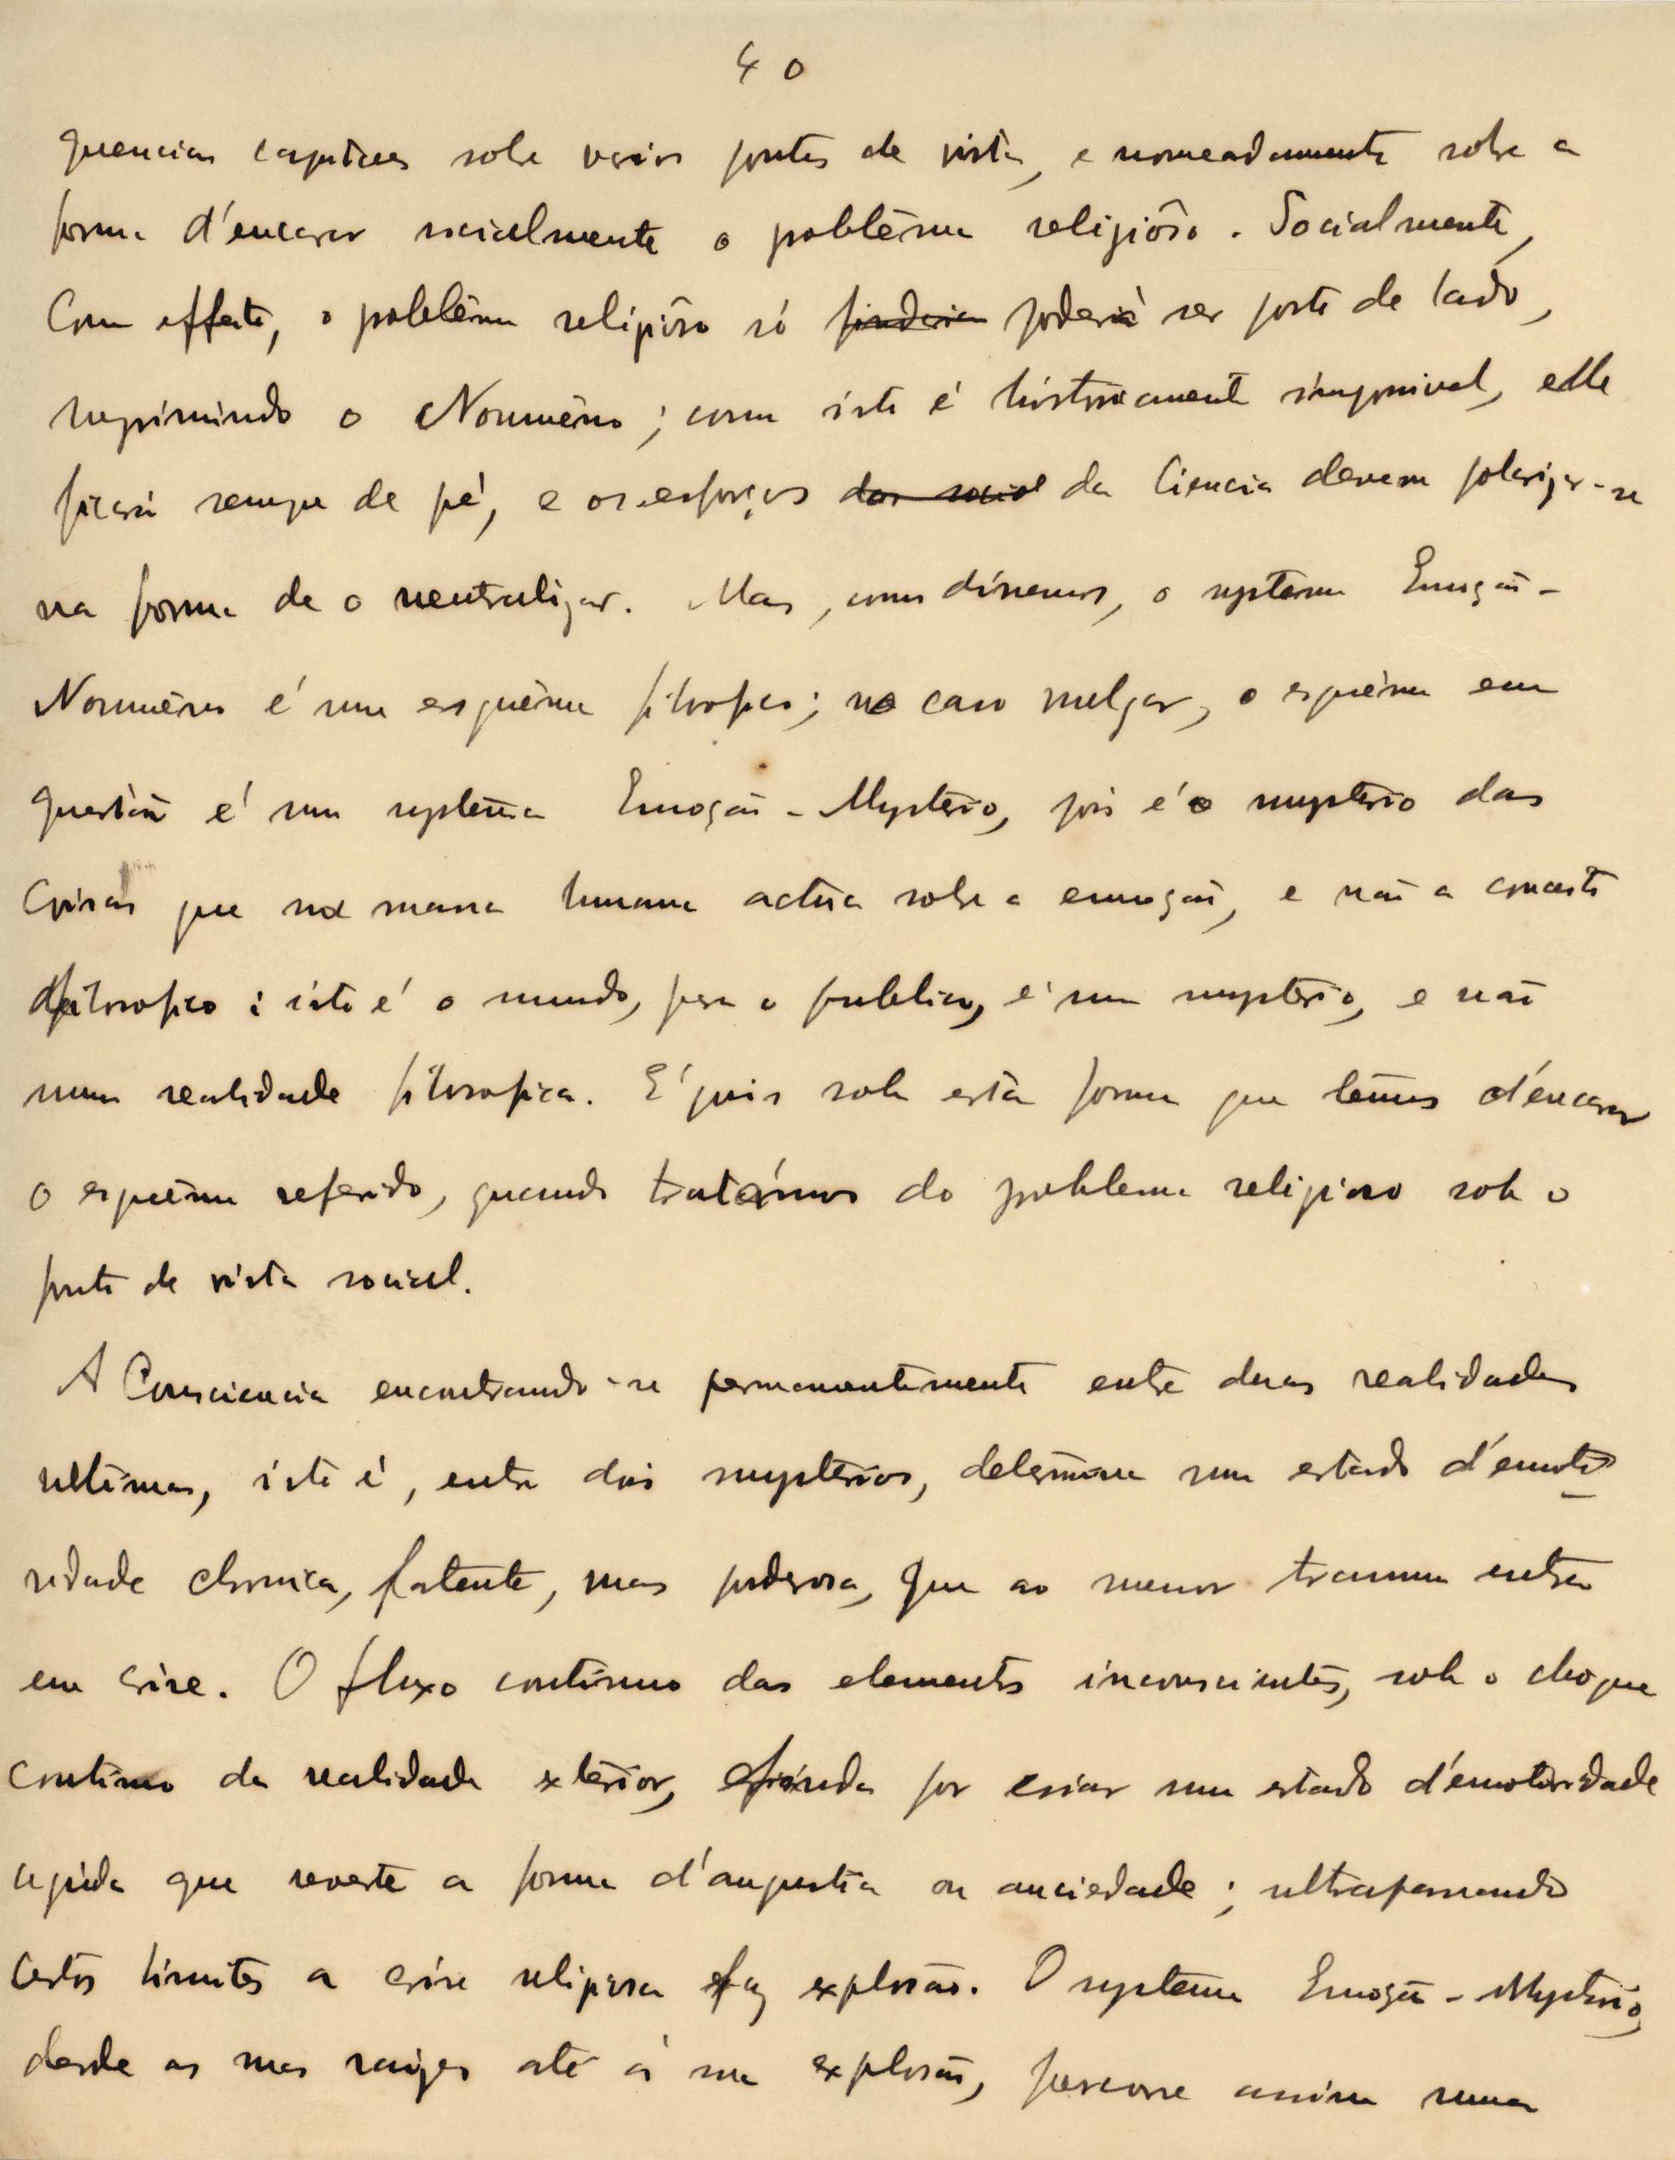 40
quencias capitaes sobre varios pontos de vista, e nomeadamente sobre a
forma d'encarar socialmente o problêma religiôso. Socialmente,
Com effeito, o problêma religiôso só poderia poderá ser posto de lado,
suprimindo o Noumêno; como isto é historicamente impossivel, elle
ficará sempre de pé, e os esforços das social da Ciencia devem polarizar-se
na forma de o neutralizar. Mas, como dissemos, o systema Emoção-
Noumêno é um esquêma filosofico; no caso vulgar, o esquêma em
questão é um systêma Emoção-Mysterio, pois é o mysterio das
Coisas que na massa humana actúa sobre a emoção, e não o conceito
filosofico: isto é o mundo, para o publico, é um mysterio, e não
uma realidade filosofica. E' pois sob esta forma que temos d'encarar
o esquêma referido, quando tratármos do problema religioso sob o
ponto de vista social.
A Consciencia encontrando-se permanentemente entre duas realidades
ultimas, isto é, entre dois mysterios, determina um estado d'emoti-
vidade chronica, latente, mas poderosa, que ao menor trauma entra
em crise. O fluxo continuo dos elementos inconscientes, sob o choque
continuo da realidade exterior, por criar um estado d'emotividade
aguda que reveste a forma d'angustia ou anciedade; ultrapassando
certos limites a crise religiosa faz explosão. O systema Emoção-Mysterio,
desde as suas raizes até á sua explosão, percorre assim uma